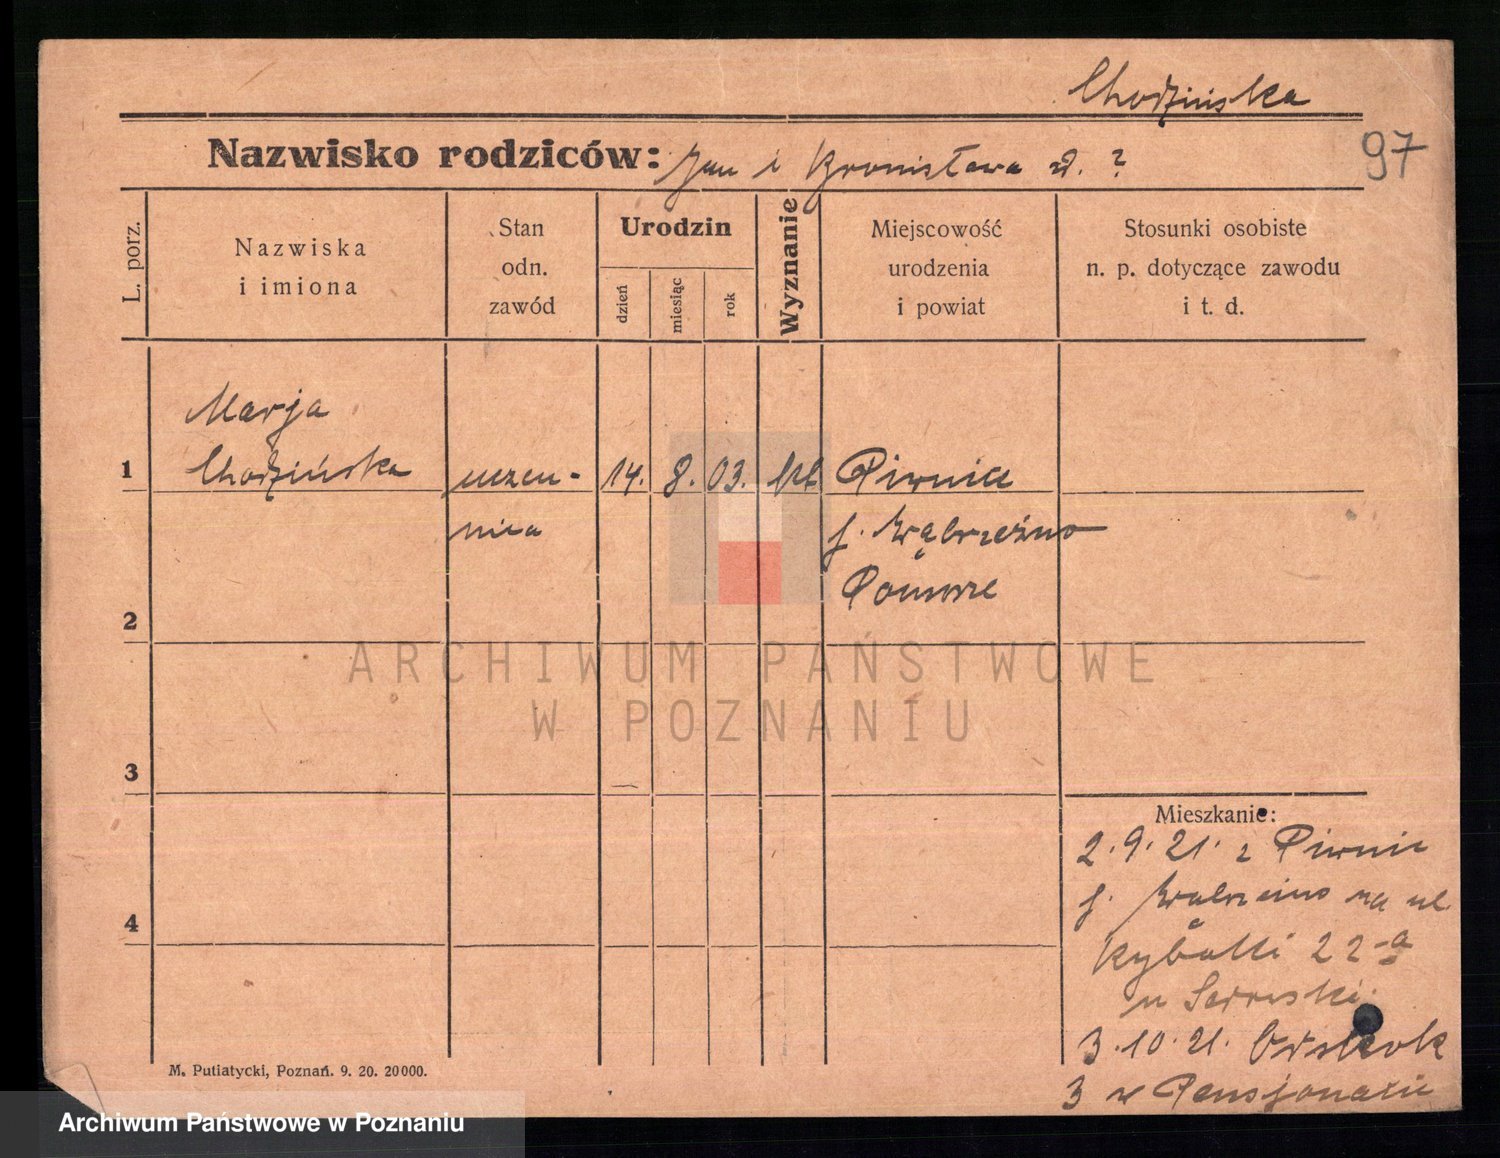 Chodzińska
97
Nazwisko rodziców: Jan i Bronisława d. ?
L. porz.
Nazwiska
i imiona
Stan
odn.
zawód
Urodzin
dzień
miesiąc
rok
Wyznanie
Miejscowość
urodzenia
i powiat
Stosunki osobiste
n. p. dotyczące zawodu
i t. d.
Marja
1 Chodzińska uczen- 14. 8. 03. kt Piwnice
nica p. Wąbrzeźno
Pomorze
2
ARCHIWUM PAŃSTWOWE
W POZNANIU
3
Mieszkanie:
2.9.21. z Piwnic
p. Wąbrzeźno na ul
4
Rybaki 22-a
u
3.10.21.
3 w Pensjonacie
M. Putiatycki, Poznań. 9. 20. 20000.
Archiwum Państwowe w Poznaniu